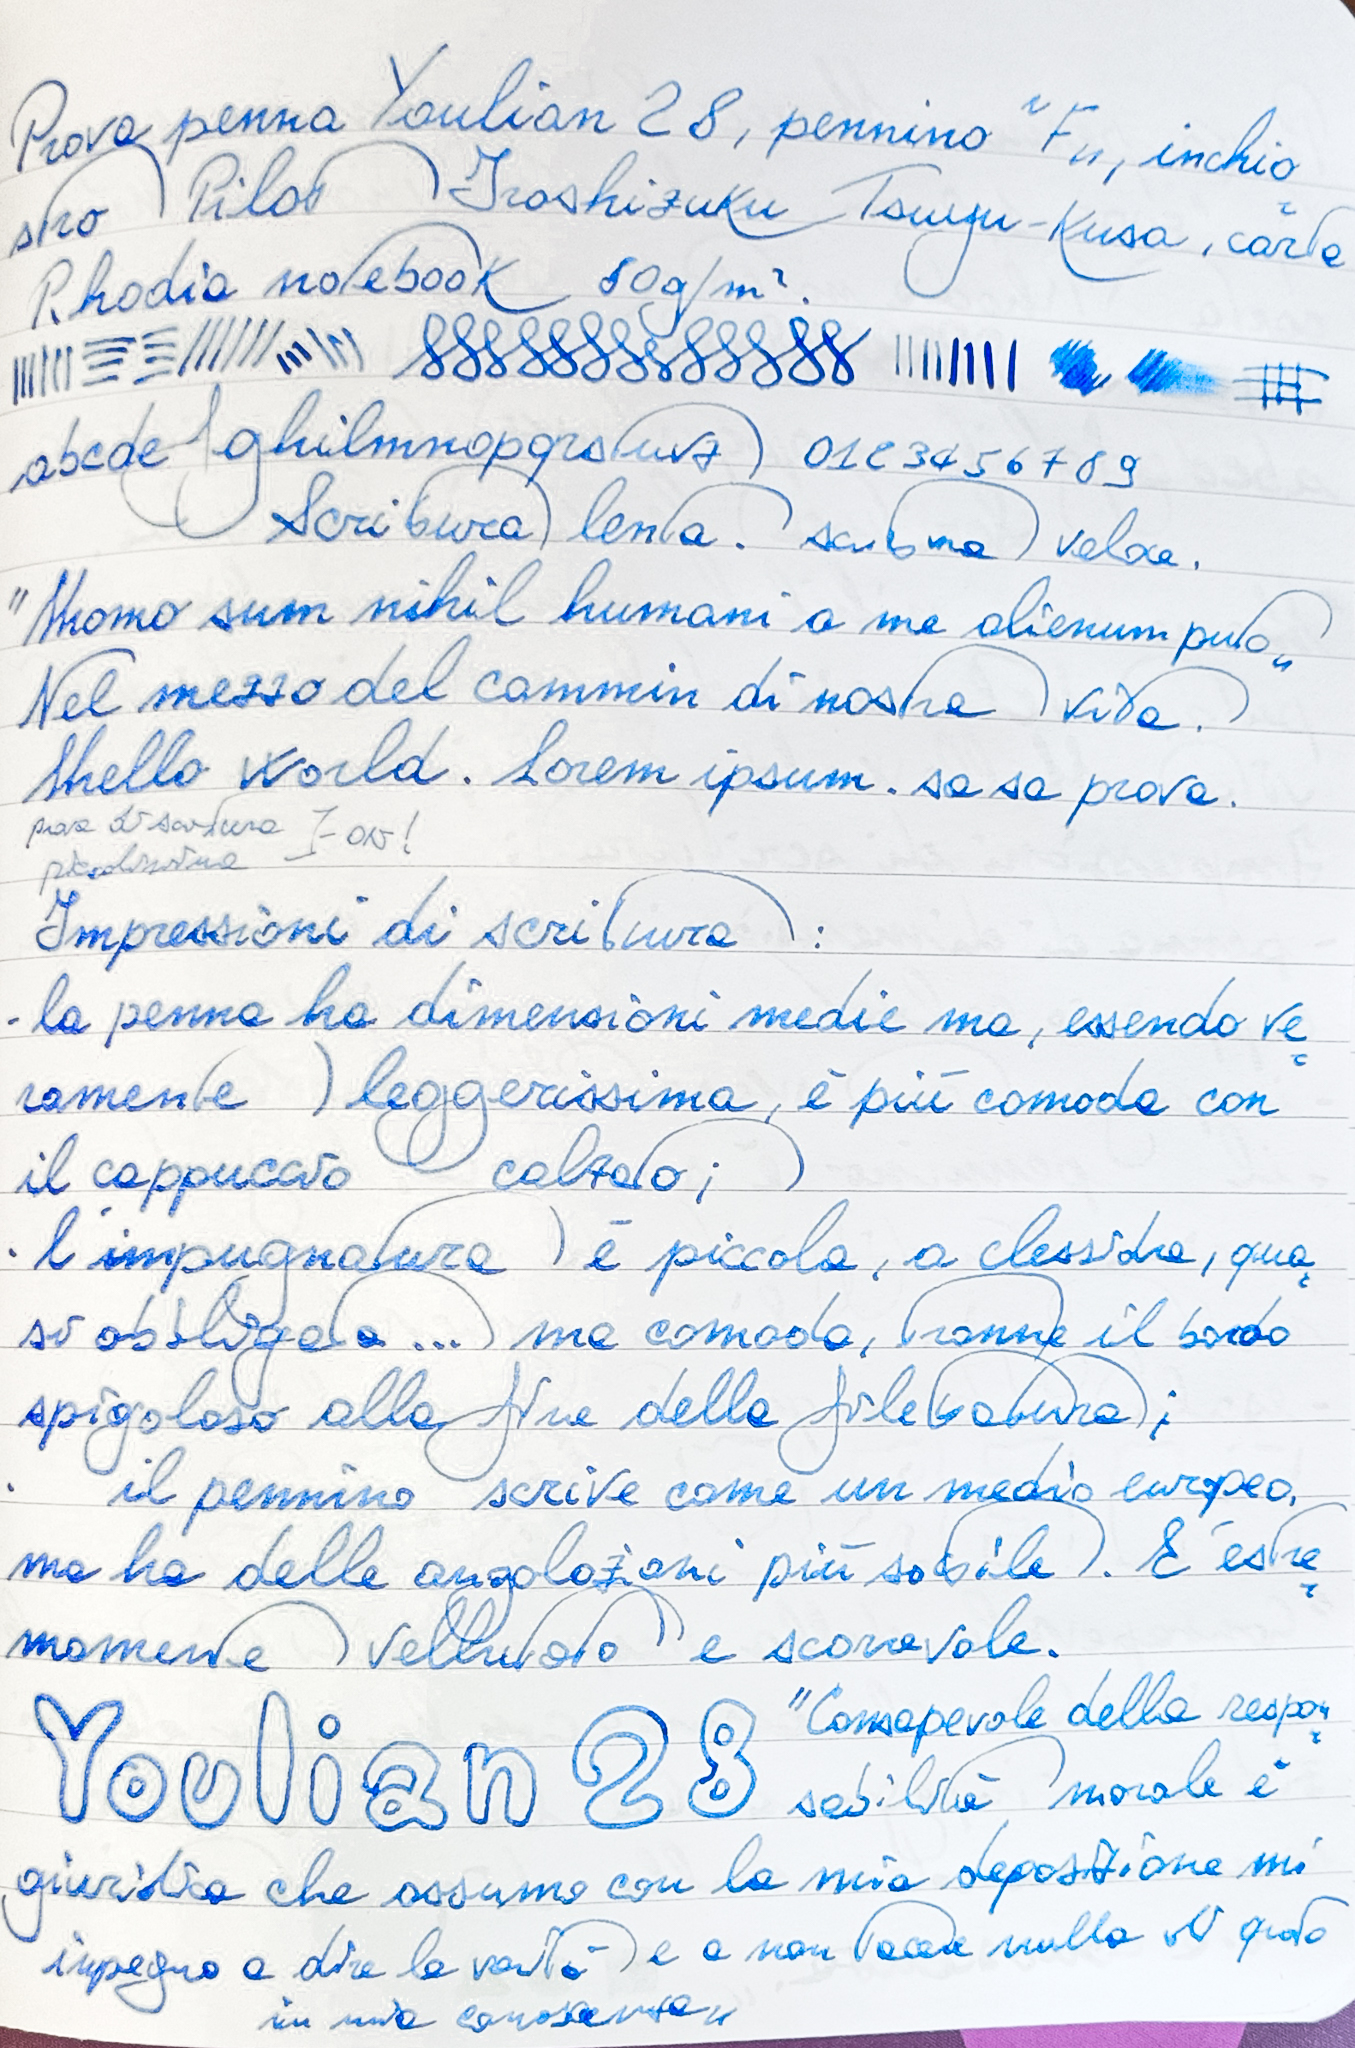 Prova penna Youlian 28, pennino "F„, inchio
stro Pilot Iroshizuku Tsuyu-Kusa, carta
Rhodia notebook 80g/m².
abcdefghilmnopqrstuvz 0123456789
Scrittura lenta. scrittura veloce.
"Homo sum nihil humani a me alienum puto„
Nel mezzo del cammin di nostra vita.
Hello World. Lorem ipsum. sa sa prova.
prova di scrittura
piccolissima
Impressioni di scrittura:
- la penna ha dimensioni medie ma, essendo ve
ramente leggerissima, è più comoda con
il cappuccio calzato;
· l'impugnatura è piccola, a clessidra, qua
si obbligata... ma comoda, tranne il bordo
spigoloso alla fine della filettatura;
· il pennino scrive come un medio europeo,
ma ha delle angolazioni più sottile. È estre
mamente vellutato e scorrevole.
Youlian 28
"Consapevole della respon
sabilità morale e
giuridica che assumo con la mia deposizione mi
impegno a dire la verità e a non tacere nulla di quanto
in mia conoscenza„